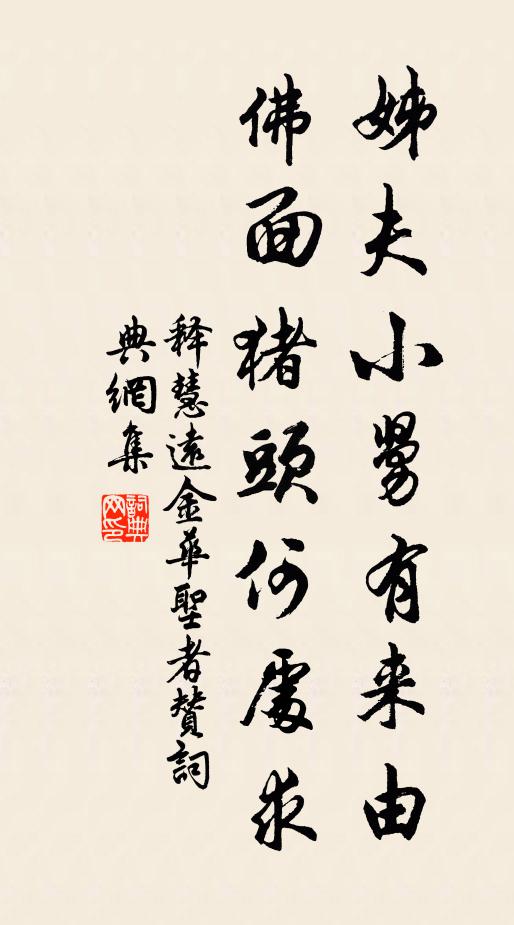 姊夫小舅有来由
佛面猪頭何處求
释慧遠金華聖者贊詞
典網集
詞典網印